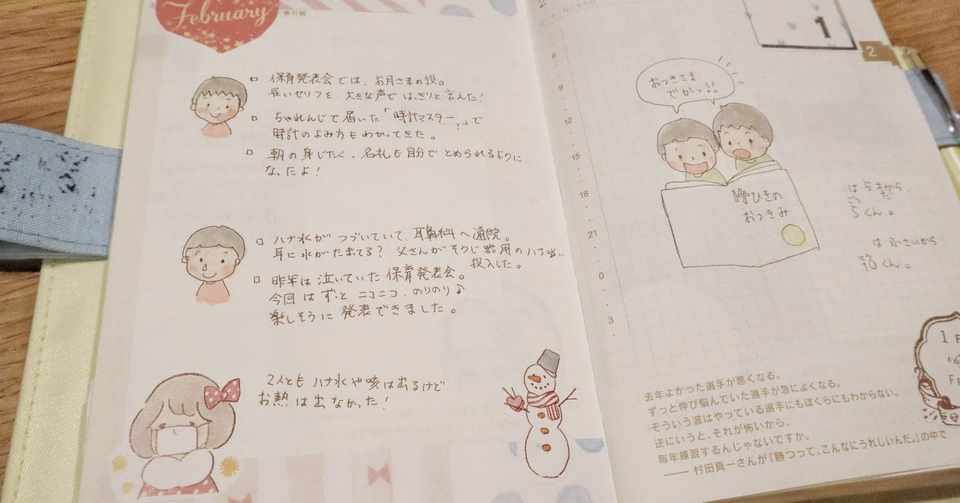 February
□ 保育発表会では、お月さまの役。
長いセリフを 大きな声で はっきりと 言えた！
□ ちゃれんじで届いた「時計マスター」で
時計のよみ方も わかってきた。
□ 朝の身じたく、名札も自分で とめられるように
なったよ！
□ ハナ水が つづいていて、耳鼻科へ通院。
耳に水がたまってる？ 父さんが
投入した。
□ 昨年は泣いていた 保育発表会。
今回は ずっと ニコニコ、のりのり♪
楽しそうに 発表できました。
2人とも ハナ水や咳はあるけど
お熱は出なかった！
1
2
おつきさま
でかっ!!
ひきの
おつきみ
は
から
くん。
は
から
くん。
9
12
15
18
21
0
3
1
去年よかった選手が悪くなる。
ずっと伸び悩んでいた選手が急によくなる。
そういう波はやっている選手にもぼくらにもわからない。
逆にいうと、それが怖いから、
毎年練習するんじゃないですか。
――村田真一さんが『勝つって、こんなにうれしいんだ。』の中で